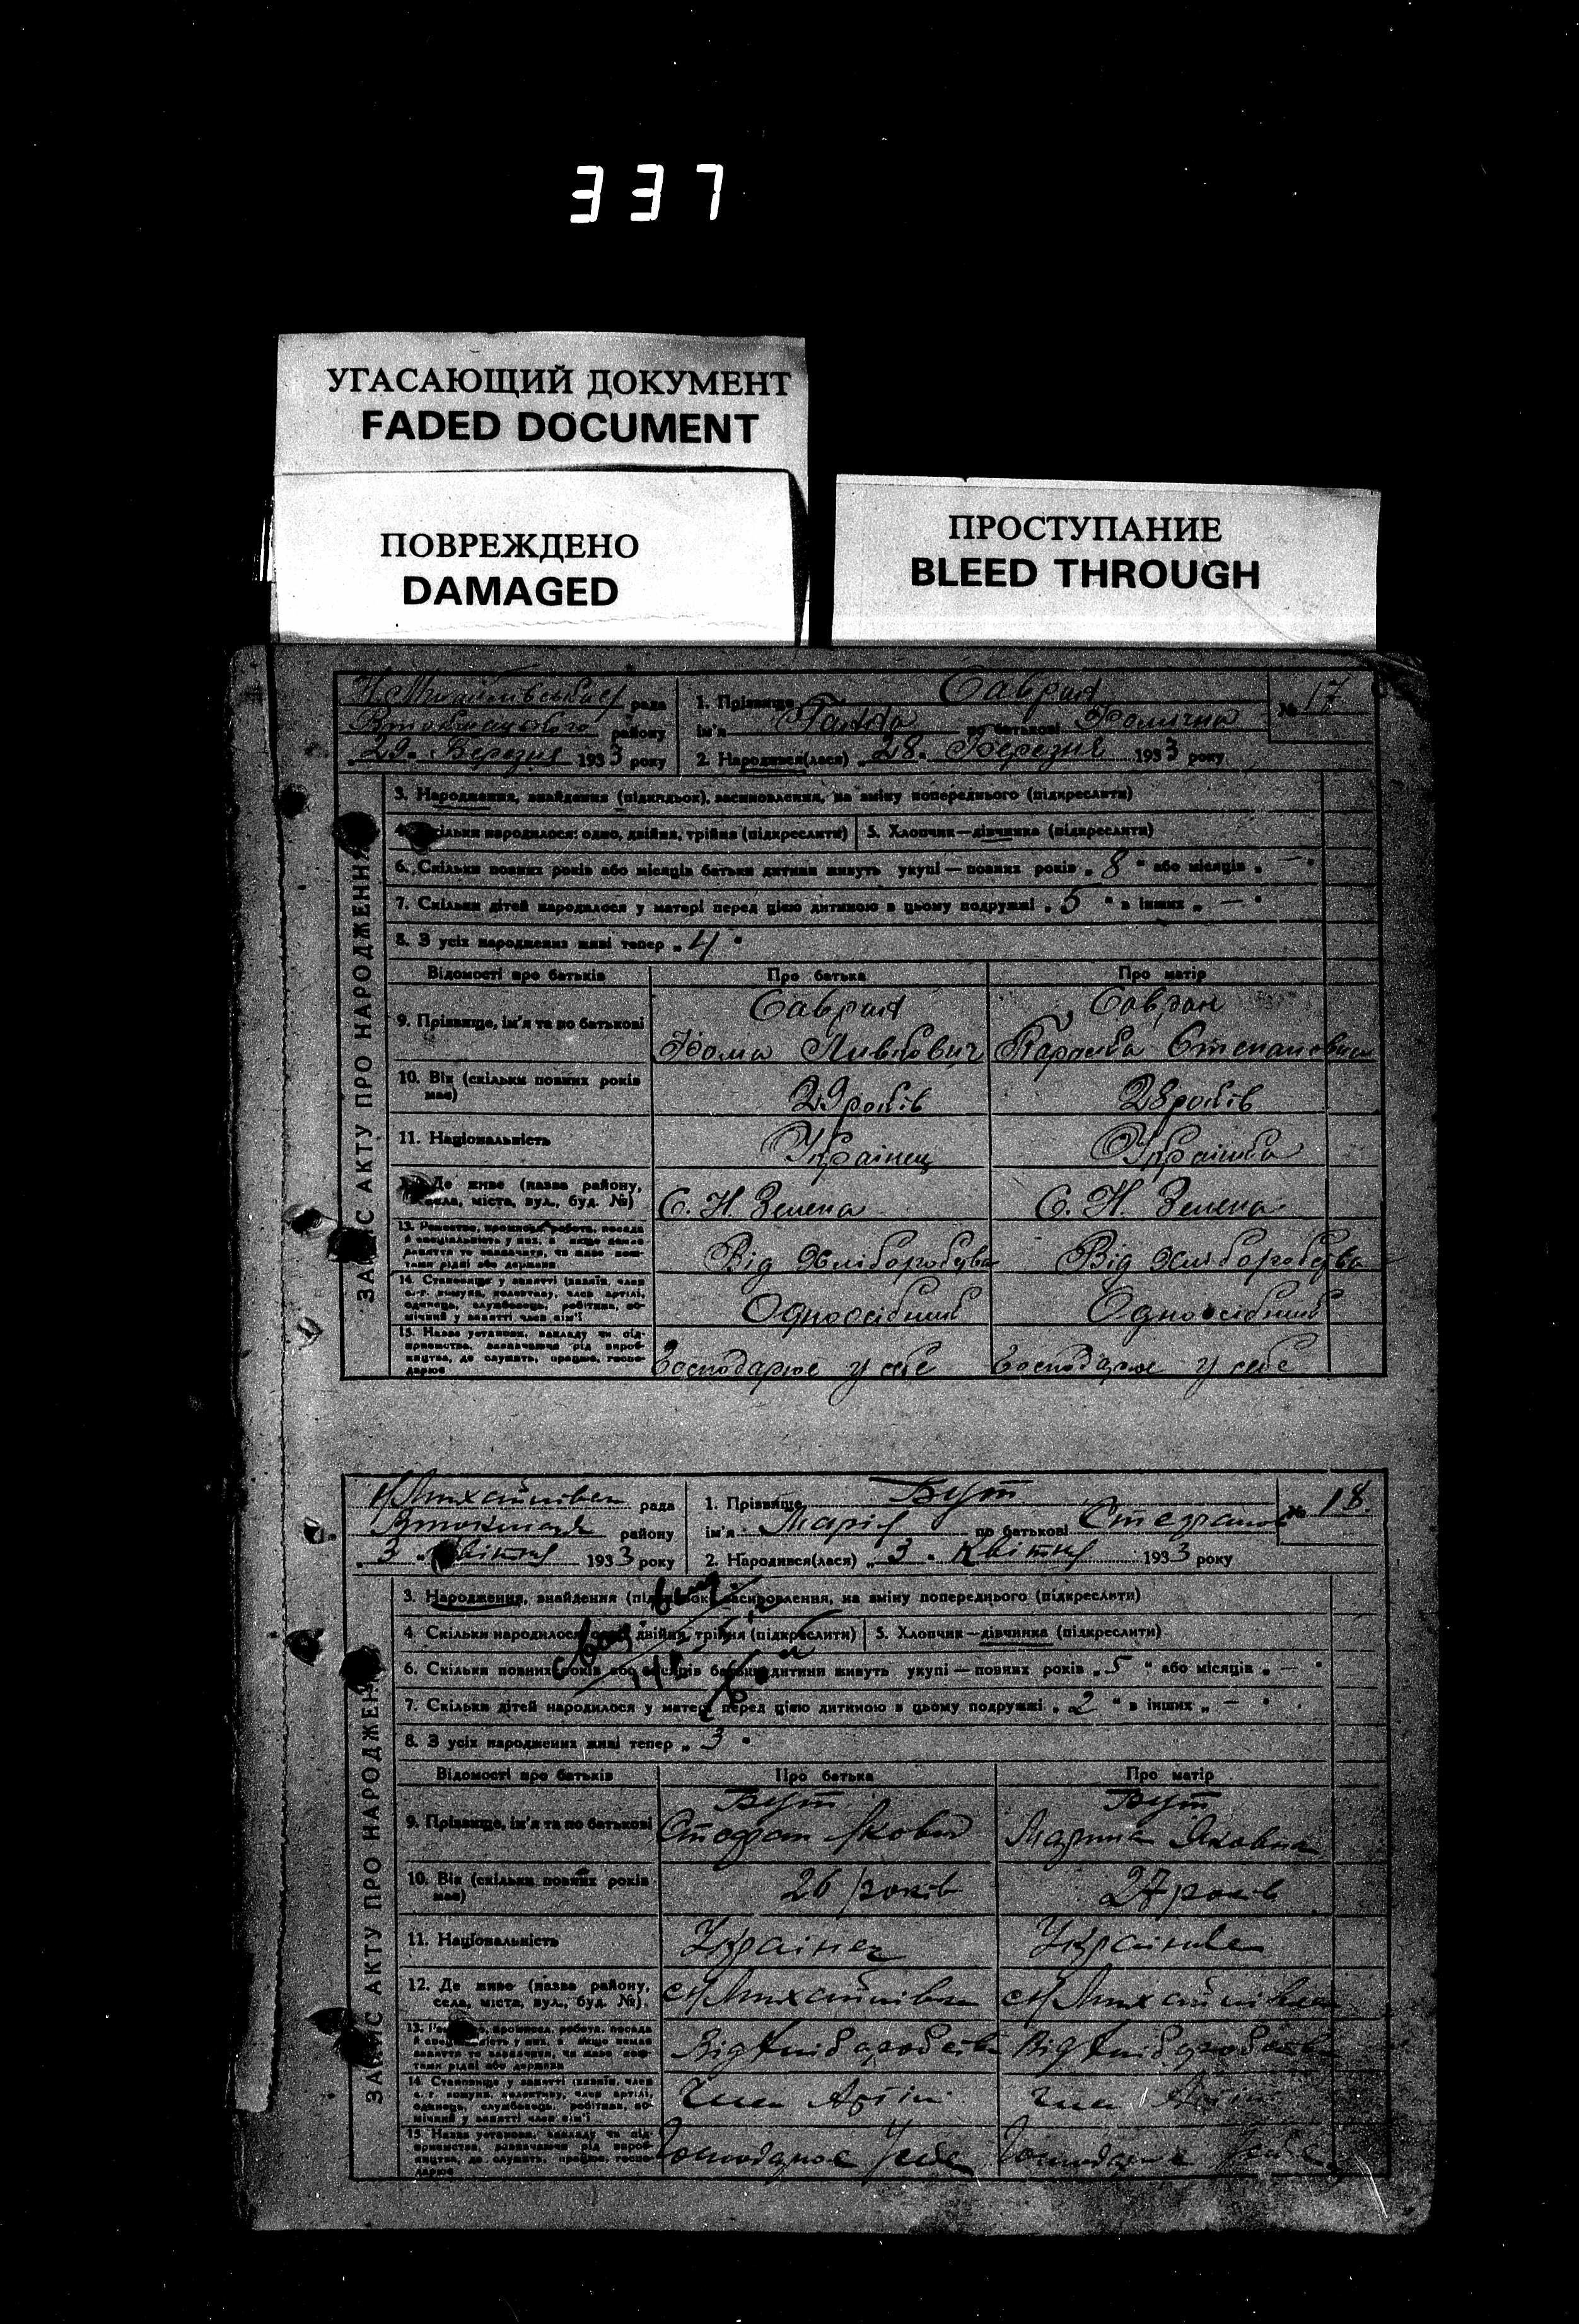 337
УГАСАЮЩИЙ ДОКУМЕНТ
FADED DOCUMENT
ПОВРЕЖДЕНО
DAMAGED
ПРОСТУПАНИЕ
BLEED THROUGH
ЗАПИС АКТУ ПРО НАРОДЖЕННЯ
рада
району
„29" Березня 1933 року
1. Прізвище Савран
№ 17.
ім'я Ганна по батькові Хомична
2. Народився(лася) „28" Березня 1933 року
3. Народження, знайдення (підкидьок), засиновлення, на зміну попереднього (підкреслити)
4. Скільки народилося: одно, двійня, трійня (підкреслити) 5. Хлопчик—дівчинка (підкреслити)
6. Скільки повних років або місяців батьки дитини живуть укупі — повних років „8" або місяців „—"
7. Скільки дітей народилося у матері перед цією дитиною в цьому подружжі „5" в інших „—"
8. З усіх народжених живі тепер „4"
Відомості про батьків Про батька Про матір
9. Прізвище, ім'я та по батькові Савран Савран
Хома Пивкович Параска Степановна
10. Вік (скільки повних років має) 29 років 28 років
11. Національність Українец Українка
12. Де живе (назва району, села, міста, вул., буд. №) С. Н. Зелена С. Н. Зелена
13. Ремество, промисел, робота, посада й спеціяльність у них, а якщо немає заняття то зазначити, чи живе коштами рідні або держави Від Хліборобства Від Хліборобства
14. Становище у занятті (хазяїн, член с.-г. комуни, колективу, член артілі, одинець, службовець, робітник, помічний у занятті член сім'ї Одноосібник Одноосібник
15. Назва установи, закладу чи підприємства, зазначаючи рід виробництва, де служить, працює, господарює Господарює у себе Господарює у себе
ЗАПИС АКТУ ПРО НАРОДЖЕННЯ
рада
району
„3" Квітня 1933 року
1. Прізвище Бут
№ 18.
ім'я Марія по батькові Стефанов
2. Народився(лася) „3" Квітня 1933 року
3. Народження, знайдення (підкидьок), засиновлення, на зміну попереднього (підкреслити)
4. Скільки народилося: одно, двійня, трійня (підкреслити) 5. Хлопчик—дівчинка (підкреслити)
6. Скільки повних років або місяців батьки дитини живуть укупі — повних років „5" або місяців „—"
7. Скільки дітей народилося у матері перед цією дитиною в цьому подружжі „2" в інших „—"
8. З усіх народжених живі тепер „3"
Відомості про батьків Про батька Про матір
9. Прізвище, ім'я та по батькові Бут Бут
Стефан Якович Марина Яковна
10. Вік (скільки повних років має) 26 років 27 років
11. Національність Українец Українка
12. Де живе (назва району, села, міста, вул., буд. №). с Н Михайлівка с Н Михайлівка
13. Ремество, промисел, робота, посада й спеціяльність у них, а якщо немає заняття то зазначити, чи живе коштами рідні або держави Від Хліборобства Від Хліборобства
14. Становище у занятті (хазяїн, член с.-г. комуни, колективу, член артілі, одинець, службовець, робітник, помічний у занятті член сім'ї Член Артілі Член Артілі
15. Назва установи, закладу чи підприємства, зазначаючи рід виробництва, де служить, працює, господарює Господарює у себе Господарює у себе